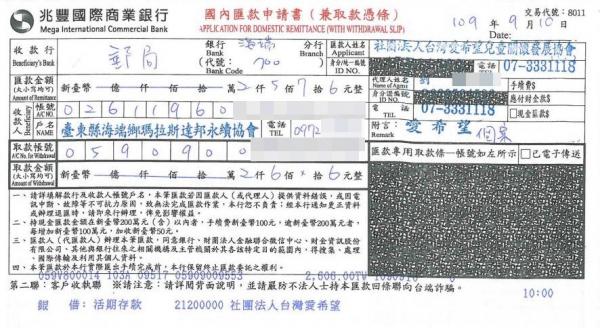 兆豐國際商業銀行
Mega International Commercial Bank
國內匯款申請書（兼取款憑條）
APPLICATION FOR DOMESTIC REMITTANCE (WITH WITHDRAWAL SLIP)
交易代號：8011
109年9月10日
收款行
Beneficiary's Bank
郵局
銀行
(代號：
Bank Code
700
分行
匯款人姓名
Applicant
身分證/統一編號
ID NO.
社團法人台灣愛希望兒童關懷發展協會
電話
07-3331118
匯款金額
(大小寫均可)
Amount of Remittance
新臺幣 億 仟 佰 拾 萬 2 仟 5 佰 7 拾 6 元整
代理人姓名
身分證號碼
ID NO.
電話
TEL
07-3331118
手續費
應付財金款
現金匯款
收款人
帳號
A/C NO.
0261960
戶名
NAME
臺東縣海端鄉瑪拉斯達邦永續協會
電話
TEL
0972
附言
Remark
愛希望
個案
取款帳號
A/C No. for Withdrawal
059090
匯款專用取款條—帳號如左所示
已電子傳送
取款金額
(大小寫均可)
Amount of Withdrawal
新臺幣 億 仟 佰 拾 萬 2 仟 6 佰 拾 6 元整
一、請詳細填解款行及收款人帳號戶名，本筆匯款若因匯款人（或代理人）提供資料錯誤，或因電
訊中斷、故障等不可抗力原因，致無法完成匯款作業，本行恕不負責；經本行通知更正資料
或辦理退匯時，請即來行辦理，俾免影響權益。
二、持現金匯款金額在新臺幣200萬元（含）以內者，手續費新臺幣100元，逾新臺幣200萬元者，
每增加新臺幣100萬元，加收新臺幣50元。
三、匯款人（代匯款人）辦理本筆匯款，同意銀行、財團法人金融聯合徵信中心、財金資訊股份
有限公司、其他與銀行往來之相關機構及主管機關於其各該特定目的範圍內，得蒐集、處理、
國際傳輸及利用其個人資料。
四、本筆匯款於本行實際匯出手續完成前，本行保留終止匯款委託之權利。
059V800014 103A 09517 05909009553
2,606.00TW 1090910
10:00
第二聯：客戶收執聯
※請注意：請詳閱背面說明，並請嚴防不法人士持本匯款回條聯向台端詐騙。
銀 借：活期存款 21200000 社團法人台灣愛希望